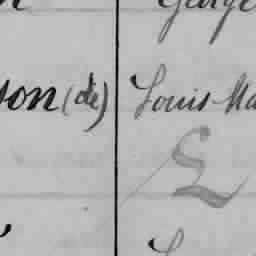 George
son (de) Louis Ma